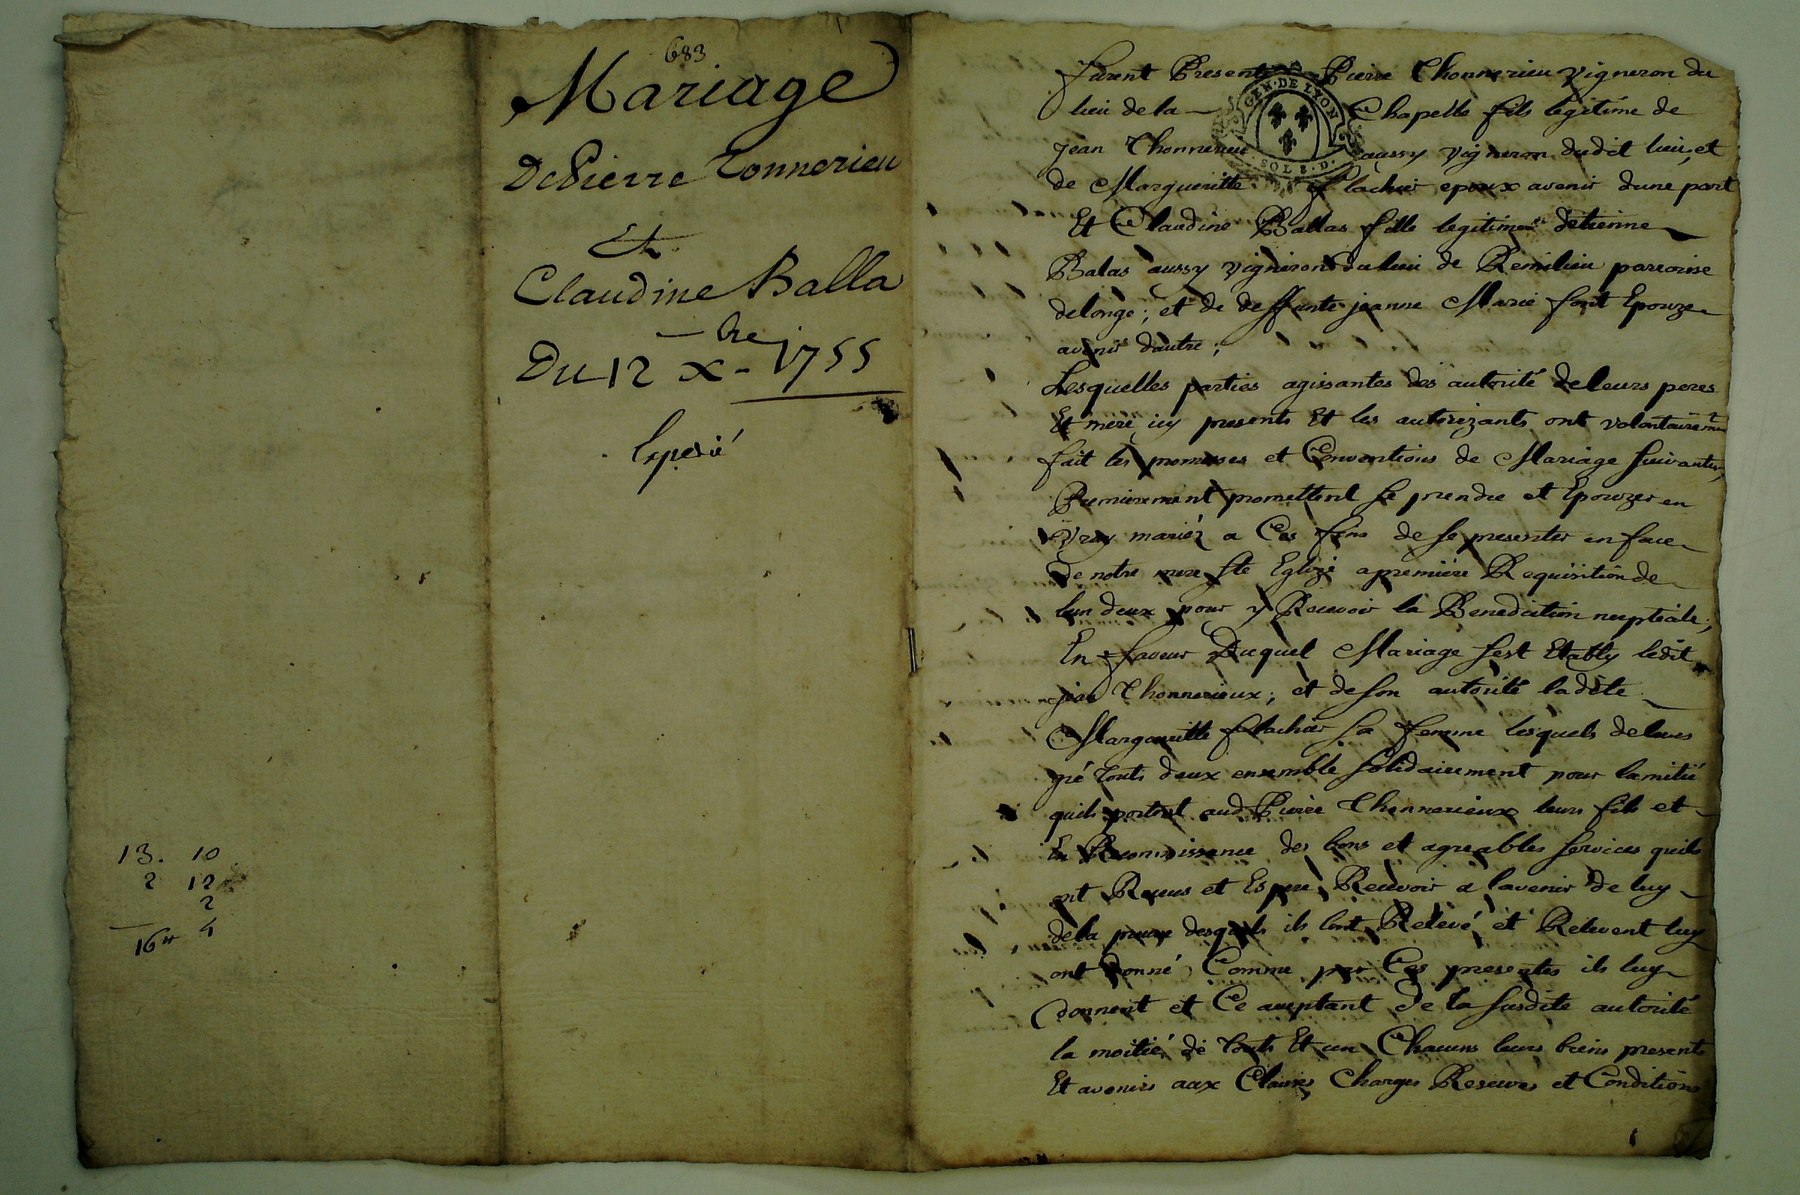 683
Mariage
De Pierre Tonnerieu
Et
Claudine Balla
Du 12 Xbre 1755
Expedié
13. 10
2 12
2
16# 4
furent Presents Pierre Thonnerieu vigneron du
lieu de la Chapelle fils legitime de
jean Thonnerieu aussy vigneron dudit lieu, et
de Margueritte flachier epoux avenir dune part
Et Claudine Ballas fille legitime detienne
Balas aussy vigneron du lieu de Remilieu paroisse
delonge; et de deffunte jeanne Marie font Epouze
avenir dautre;
Lesquelles parties agissantes des autorité de leurs peres
Et mere icy presents Et les autorizants ont volontairemt
fait les promesses et Conventions de Mariage suivantes,
Premierement promettent se prendre et Epouzer en
vray mariéz a Ces fins de se presenter en face
de notre mere ste Eglize a premiere Requisition de
lun deux pour y Recevoir la Benediction nuptiale;
En faveur Duquel Mariage sest Etably ledit
jean Thonnerieux; et de son autorité ladite
Margueritte flachier sa femme lesquels de leurs
gré touts deux ensemble solidairement pour lamitié
quils portent aud Pierre Thonnerieux leurs fils et
En Reconnissance des bons et agreables services quils
ont Reçus et Espere Recevoir a lavenir de luy
de la preuve desquels ils lont Relevé et Relevent luy
ont donné Comme par Ces presentes ils luy
donnent et Ce aceptant de la susdite autorité
la moitié de touts Et un Chacuns leurs biens presents
Et avenirs aux Clauses Charges Reserves et Conditions
GEN. DE LYON
SOLS. D.